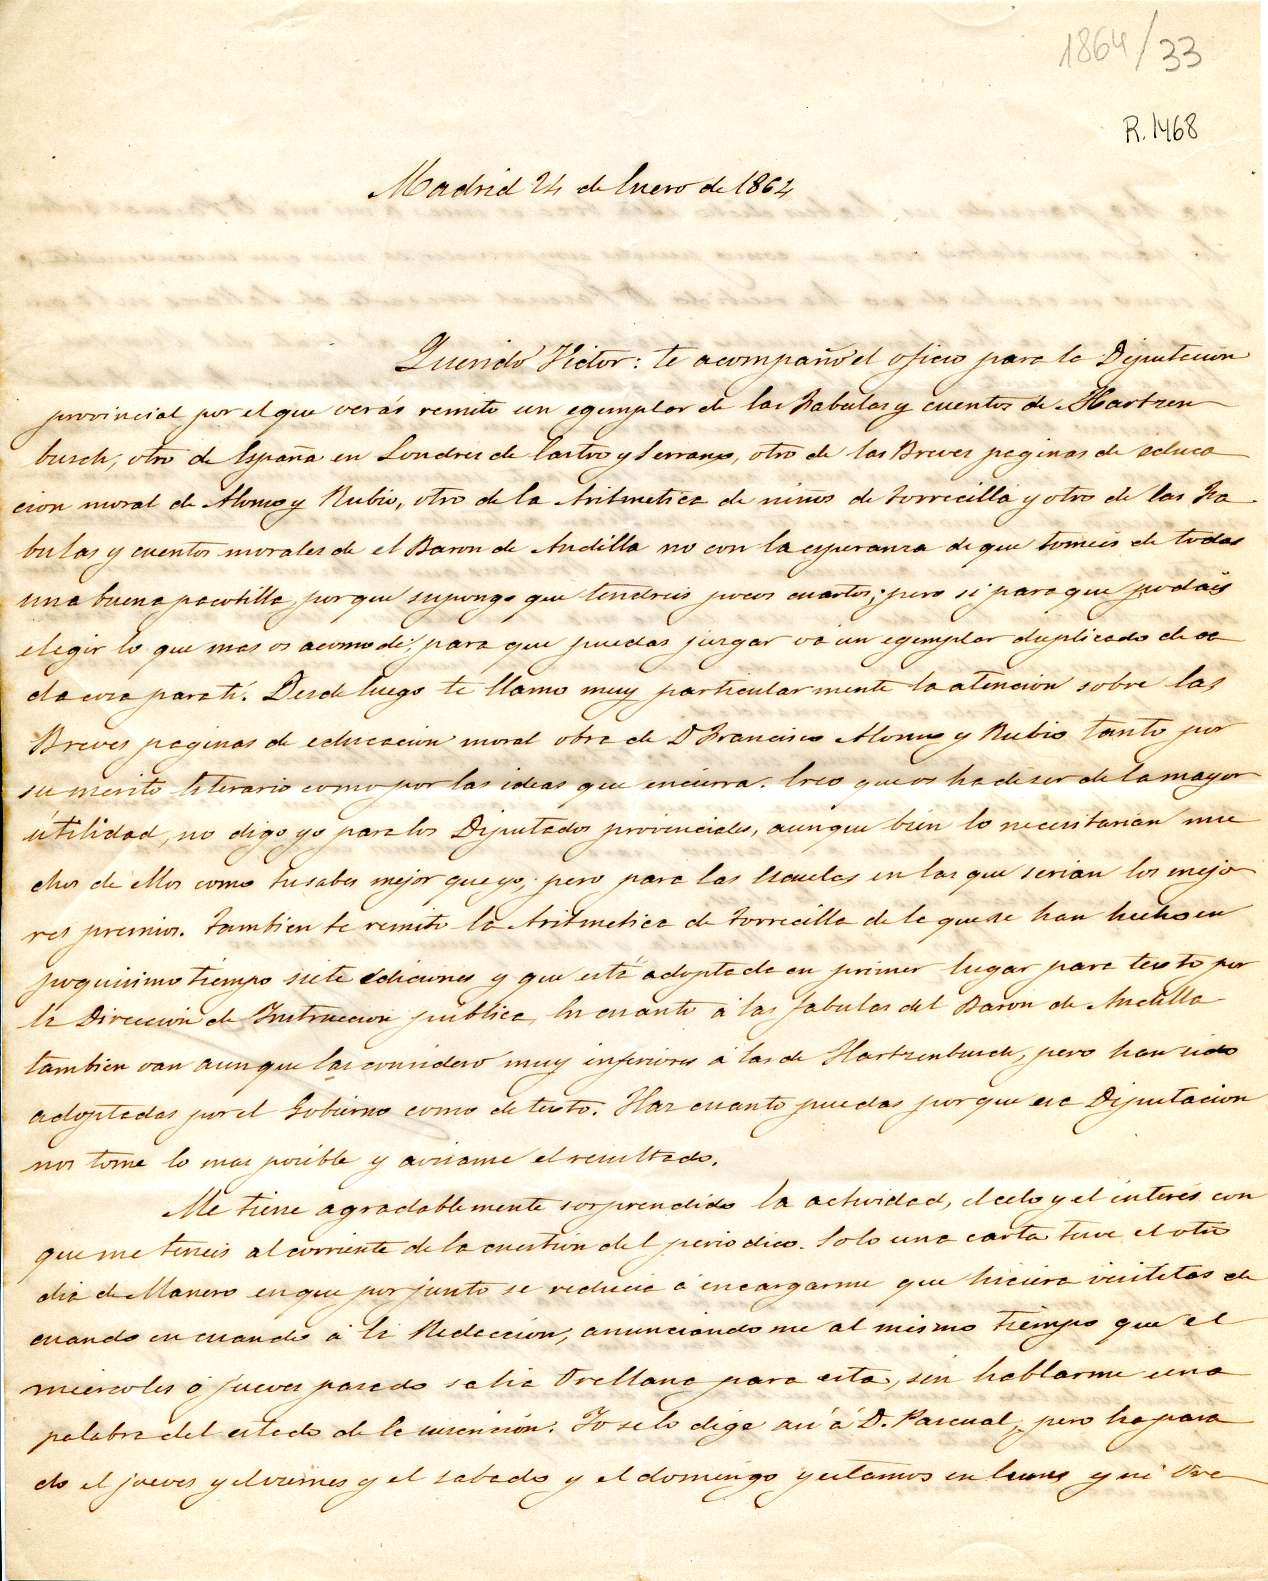 1864/33
R.1468
Madrid 24 de Enero de 1864
Querido Victor: te acompaño el oficio para la Diputacion
provincial por el que verás remito un egemplar de las Fabulas y cuentos de Hartzen
busch, otro de España en Londres de Castro y Serrano, otro de las Breves paginas de educa
cion moral de Alonso y Rubio, otro de la Aritmetica de niños de Torrecilla y otro de las Fa
bulas y cuentos morales de el Baron de Andilla no con la esperanza de que tomeis de todas
una buena pacotilla, porque supongo que tendreis pocos cuartos; pero si para que podais
elegir lo que mas os acomode; para que puedas juzgar vá un egemplar duplicado de ca
da cosa para tí. Desde luego te llamo muy particularmente la atencion sobre las
Breves paginas de educacion moral obra de D Francisco Alonso y Rubio tanto por
su merito literario como por las ideas que encierra. Creo que os ha de ser de la mayor
útilidad, no digo yo para los Diputados provinciales, aunque bien lo necesitarian mu
chos de ellos como tu sabes mejor que yo; pero para las Escuelas en las que serian los mejo
res premios. Tambien te remito la Aritmetica de Torrecilla de la que se han hecho en
poquisimo tiempo siete ediciones y que está adoptada en primer lugar para testo por
la Direccion de Instruccion publica. En cuanto á las fabulas del Baron de Andilla
tambien van aunque las considero muy inferiores á las de Hartzenbusch, pero han sido
adoptadas por el Gobierno como de testo. Haz cuanto puedas porque esa Diputacion
nos tome lo mas posible y avisame el resultado.
Me tiene agradablemente sorprendido la actividad, el celo y el interés con
que me teneis al corriente de la cuestion del periodico. Solo una carta tuve el otro
dia de Manero en que por junto se reducia á encargarme que hiciera visititas de
cuando en cuando á la Redaccion, anunciandome al mismo tiempo que el
miercoles ó jueves pasado salia Orellana para esta, sin hablarme una
palabra del estado de la suscricion. Yo se lo dige asi á D. Pascual, pero ha pasa
do el jueves y el viernes y el sabado y el domingo y estamos en lunes y ni Ore